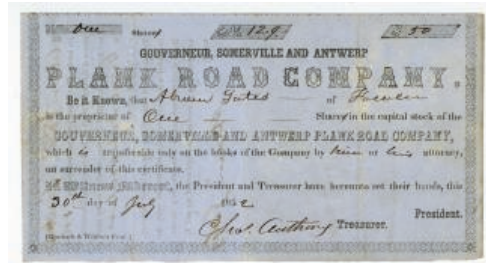 One Share No. 129. $ 50
GOUVERNEUR, SOMERVILLE AND ANTWERP
PLANK ROAD COMPANY,
Be it Known, that of
is the proprietor of One Share in the capital stock of the
GOUVERNEUR, SOMERVILLE AND ANTWERP PLANK ROAD COMPANY,
which is transferable only on the books of the Company by him or his attorney,
on surrender of this certificate.
In Witness Whereof, the President and Treasurer have hereunto set their hands, this
30th day of July 1852
President.
Chas. Anthony Treasurer.